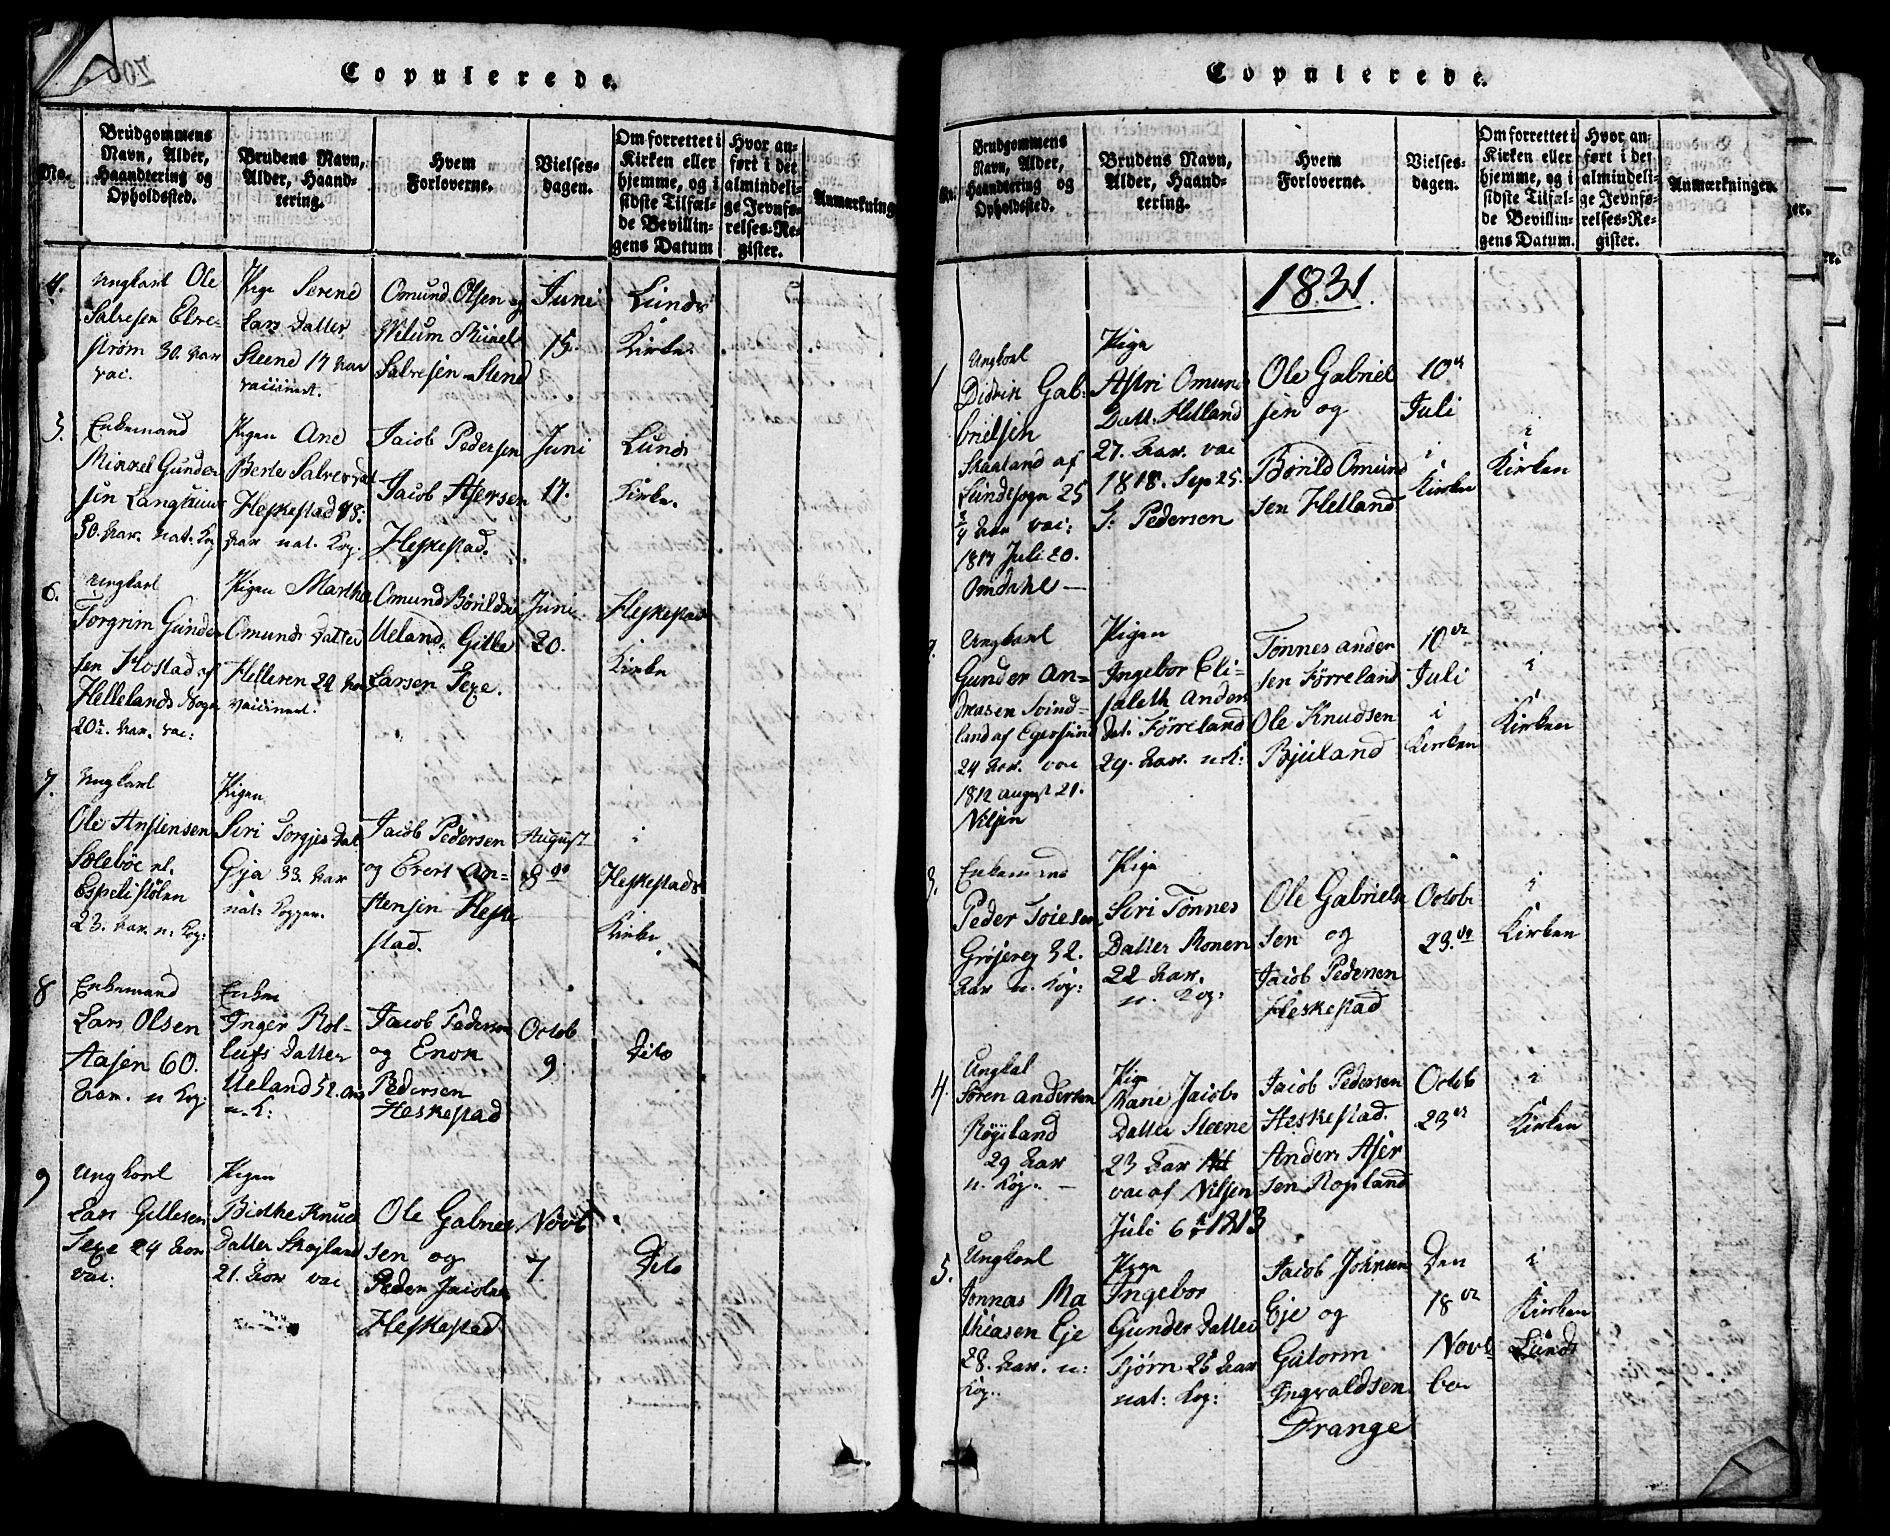 Copulerede.
No.
Brudgommens
Navn, Alder,
Haandtering og
Opholdssted.
Brudens Navn,
Alder, Haand-
tering.
Hvem
Forloverne.
Vielses-
dagen.
Om forrettet i
Kirken eller
hjemme, og i
sidste Tilfæl-
de Bevillin-
gens Datum
Hvor an-
ført i det
almindeli-
ge Jevnfø-
relses-Re-
gister.
Anmærkning
4.
Ungkarl Ole
Salvesen Elve-
strøm 30. Aar
vac.
Pige Serene
Lars Datter
Steene 17 Aar
vaccineret.
Omund Olsen og
Salvesen Stene
Juni
15.
Lunds
Kirke.
5.
Enkemand
Mikkel Gunder
sen
50. Aar. nat. Kop
Pigen Ane
Berte Salves Dat
Heskestad 18.
Aar nat. Kop:
Jacob Pedersen
Jacob Asersen
Heskestad.
Juni
17.
Lunds
Kirke.
6.
Ungkarl
Torgrim Gunder
sen Kostad af
Hellelands Sogn
20. Aar. vac:
Pigen Martha
Omunds Datter
Helleren 29 Aar
vaccineret.
Omund Børildsen
Ueland. Gitle
Larsen Texe.
Juni
20.
Heskestad
Kirke
7.
Ungkarl
Ole Anstensen
Solebøe nl.
Espetistølen
23. Aar. n. Kop:
Pigen
Siri Torgjes Dat
Gya 33. Aar
nat. Kopper.
Jacob Pedersen
og Evert An-
stensen Heske
stad.
August
8de
i
Heskestads
Kirke
8
Enkemand
Lars Olsen
Aasen 60.
Aar. n Kop:
Enken
Inger Rol-
leifs Datter
Ueland 52. Aar
n. K:
Jacob Pedersen
og Enok
Pedersen
Heskestad
Octob
9.
Dito
9
Ungkarl
Lars Gitlesen
Texe 24 Aar
vac:
Pigen
Birthe Knud
Datter Skojland
21. Aar vac
Ole Gabriel
sen og
Peder Jacobsen
Heskestad
Novb
7.
Dito
Copulerede.
No.
Brudgommens
Navn, Alder,
Haandtering og
Opholdssted.
Brudens Navn,
Alder, Haand-
tering.
Hvem
Forloverne.
Vielses-
dagen.
Om forrettet i
Kirken eller
hjemme, og i
sidste Tilfæl-
de Bevillin-
gens Datum.
Hvor an-
ført i det
almindeli-
ge Jevnfø-
relses-Re-
gister.
Anmærkninger.
1831.
1
Ungkarl
Didrik Gab-
brielsen
Skaaland af
Lunds sogn 25
3/4 Aar vac:
1817 Juli 20.
Omdahl —
Pige
Astri Omunds
Datt. Helland
27. Aar. vac
1818. Sep 25.
S. Pedersen
Ole Gabriel
sen og
Børild Omund
sen Helland
10de
Juli
i
Kirken
i
Kirken
2.
Ungkarl
Gunder An-
dreasen Svind-
land af Egersund
24 Aar. vac
1812 august 21.
Nilsen
Pigen
Ingebor Eli-
sabeth Anders
Dat. Førreland
29. Aar. n. K:
Tønnes ander
sen Førreland
Ole Knudsen
Bjuland
10de
Juli
i
Kirken
i
Kirken
3.
Enkemand
Peder Toresen
32.
Aar n. Kop:
Pige
Siri Tønnes
Datter Monen
22 Aar.
n. Kop:
Ole Gabriel
sen og
Jacob Pedersen
Heskestad
Octobr
23.de
i
Kirken
4.
Ungkal
Søren andersen
Røgeland
29 Aar
n. Kop. —
Pige
Mane Jacobs
Datter Steene
23 Aar
vac af Nilsen
Juli 6te 1813
Jacob Pedersen
Heskestad.
Anders Aser
sen Rogeland
Octob
23de
i
Kirken
5.
Ungkarl
Jonnas Ma
thiasen Eje
28. Aar. n:
Kop.
Pige
Ingebor
Gunder Datter
Bjørn 25 Aar
nat: Kop:
Jacob Johnsen
Eje og
Gutorm
Ingvaldsen
Drange
Den
18de
Novb
ber
i
Kirken
Lunds